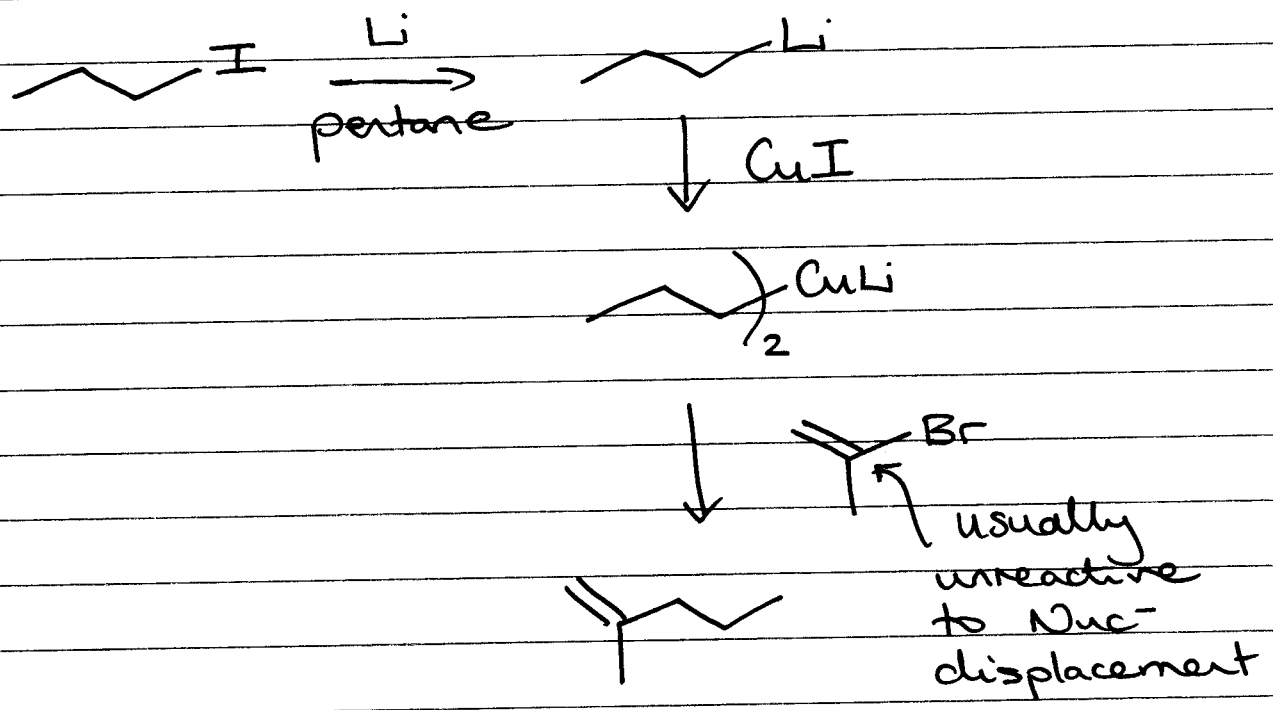 I
Li
pentane
Li
CuI
CuLi
2
Br
usually
unreactive
to Nuc-
displacement